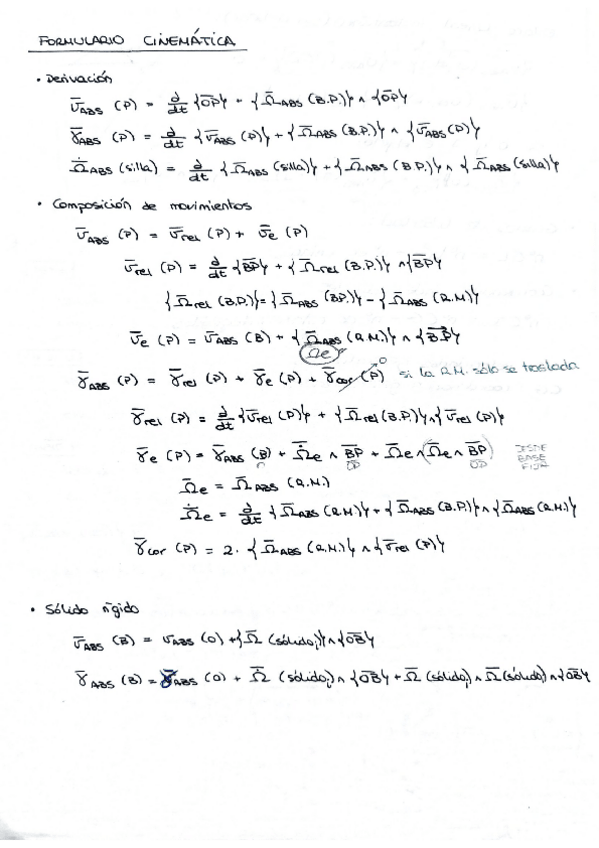 FORMULARIO CINEMÁTICA
• Derivación
v̄ABS (P) = d/dt {ŌP} + {Ω̄ABS (B.P.)} ∧ {ŌP}
γ̄ABS (P) = d/dt {v̄ABS (P)} + {Ω̄ABS (B.P.)} ∧ {v̄ABS (P)}
Ω̄̇ABS (silla) = d/dt {Ω̄ABS (silla)} + {Ω̄ABS (B.P.)} ∧ {Ω̄ABS (silla)}
• Composición de movimientos
v̄ABS (P) = v̄rel (P) + v̄e (P)
v̄rel (P) = d/dt {B̄P} + {Ω̄rel (B.P.)} ∧ {B̄P}
{Ω̄rel (B.P.)} = {Ω̄ABS (B.P.)} - {Ω̄ABS (R.M.)}
v̄e (P) = v̄ABS (B) + {Ω̄ABS (R.M.)} ∧ {B̄P}
Ωe
γ̄ABS (P) = γ̄rel (P) + γ̄e (P) + γ̄cor (P) 0 si la R.M. sólo se traslada
γ̄rel (P) = d/dt {v̄rel (P)} + {Ω̄rel (B.P.)} ∧ {v̄rel (P)}
γ̄e (P) = γ̄ABS (B) + Ω̄̇e ∧ B̄P + Ω̄e ∧ (Ω̄e ∧ B̄P) DESDE BASE FIJA
O OP OP
Ω̄e = Ω̄ABS (R.M.)
Ω̄̇e = d/dt {Ω̄ABS (R.M.)} + {Ω̄ABS (B.P.)} ∧ {Ω̄ABS (R.M.)}
γ̄cor (P) = 2 · {Ω̄ABS (R.M.)} ∧ {v̄rel (P)}
• Sólido rígido
v̄ABS (B) = vABS (O) + {Ω̄ (sólido)} ∧ {ŌB}
γ̄ABS (B) = γ̄ABS (O) + Ω̄̇ (sólido) ∧ {ŌB} + Ω̄ (sólido) ∧ Ω̄ (sólido) ∧ {ŌB}